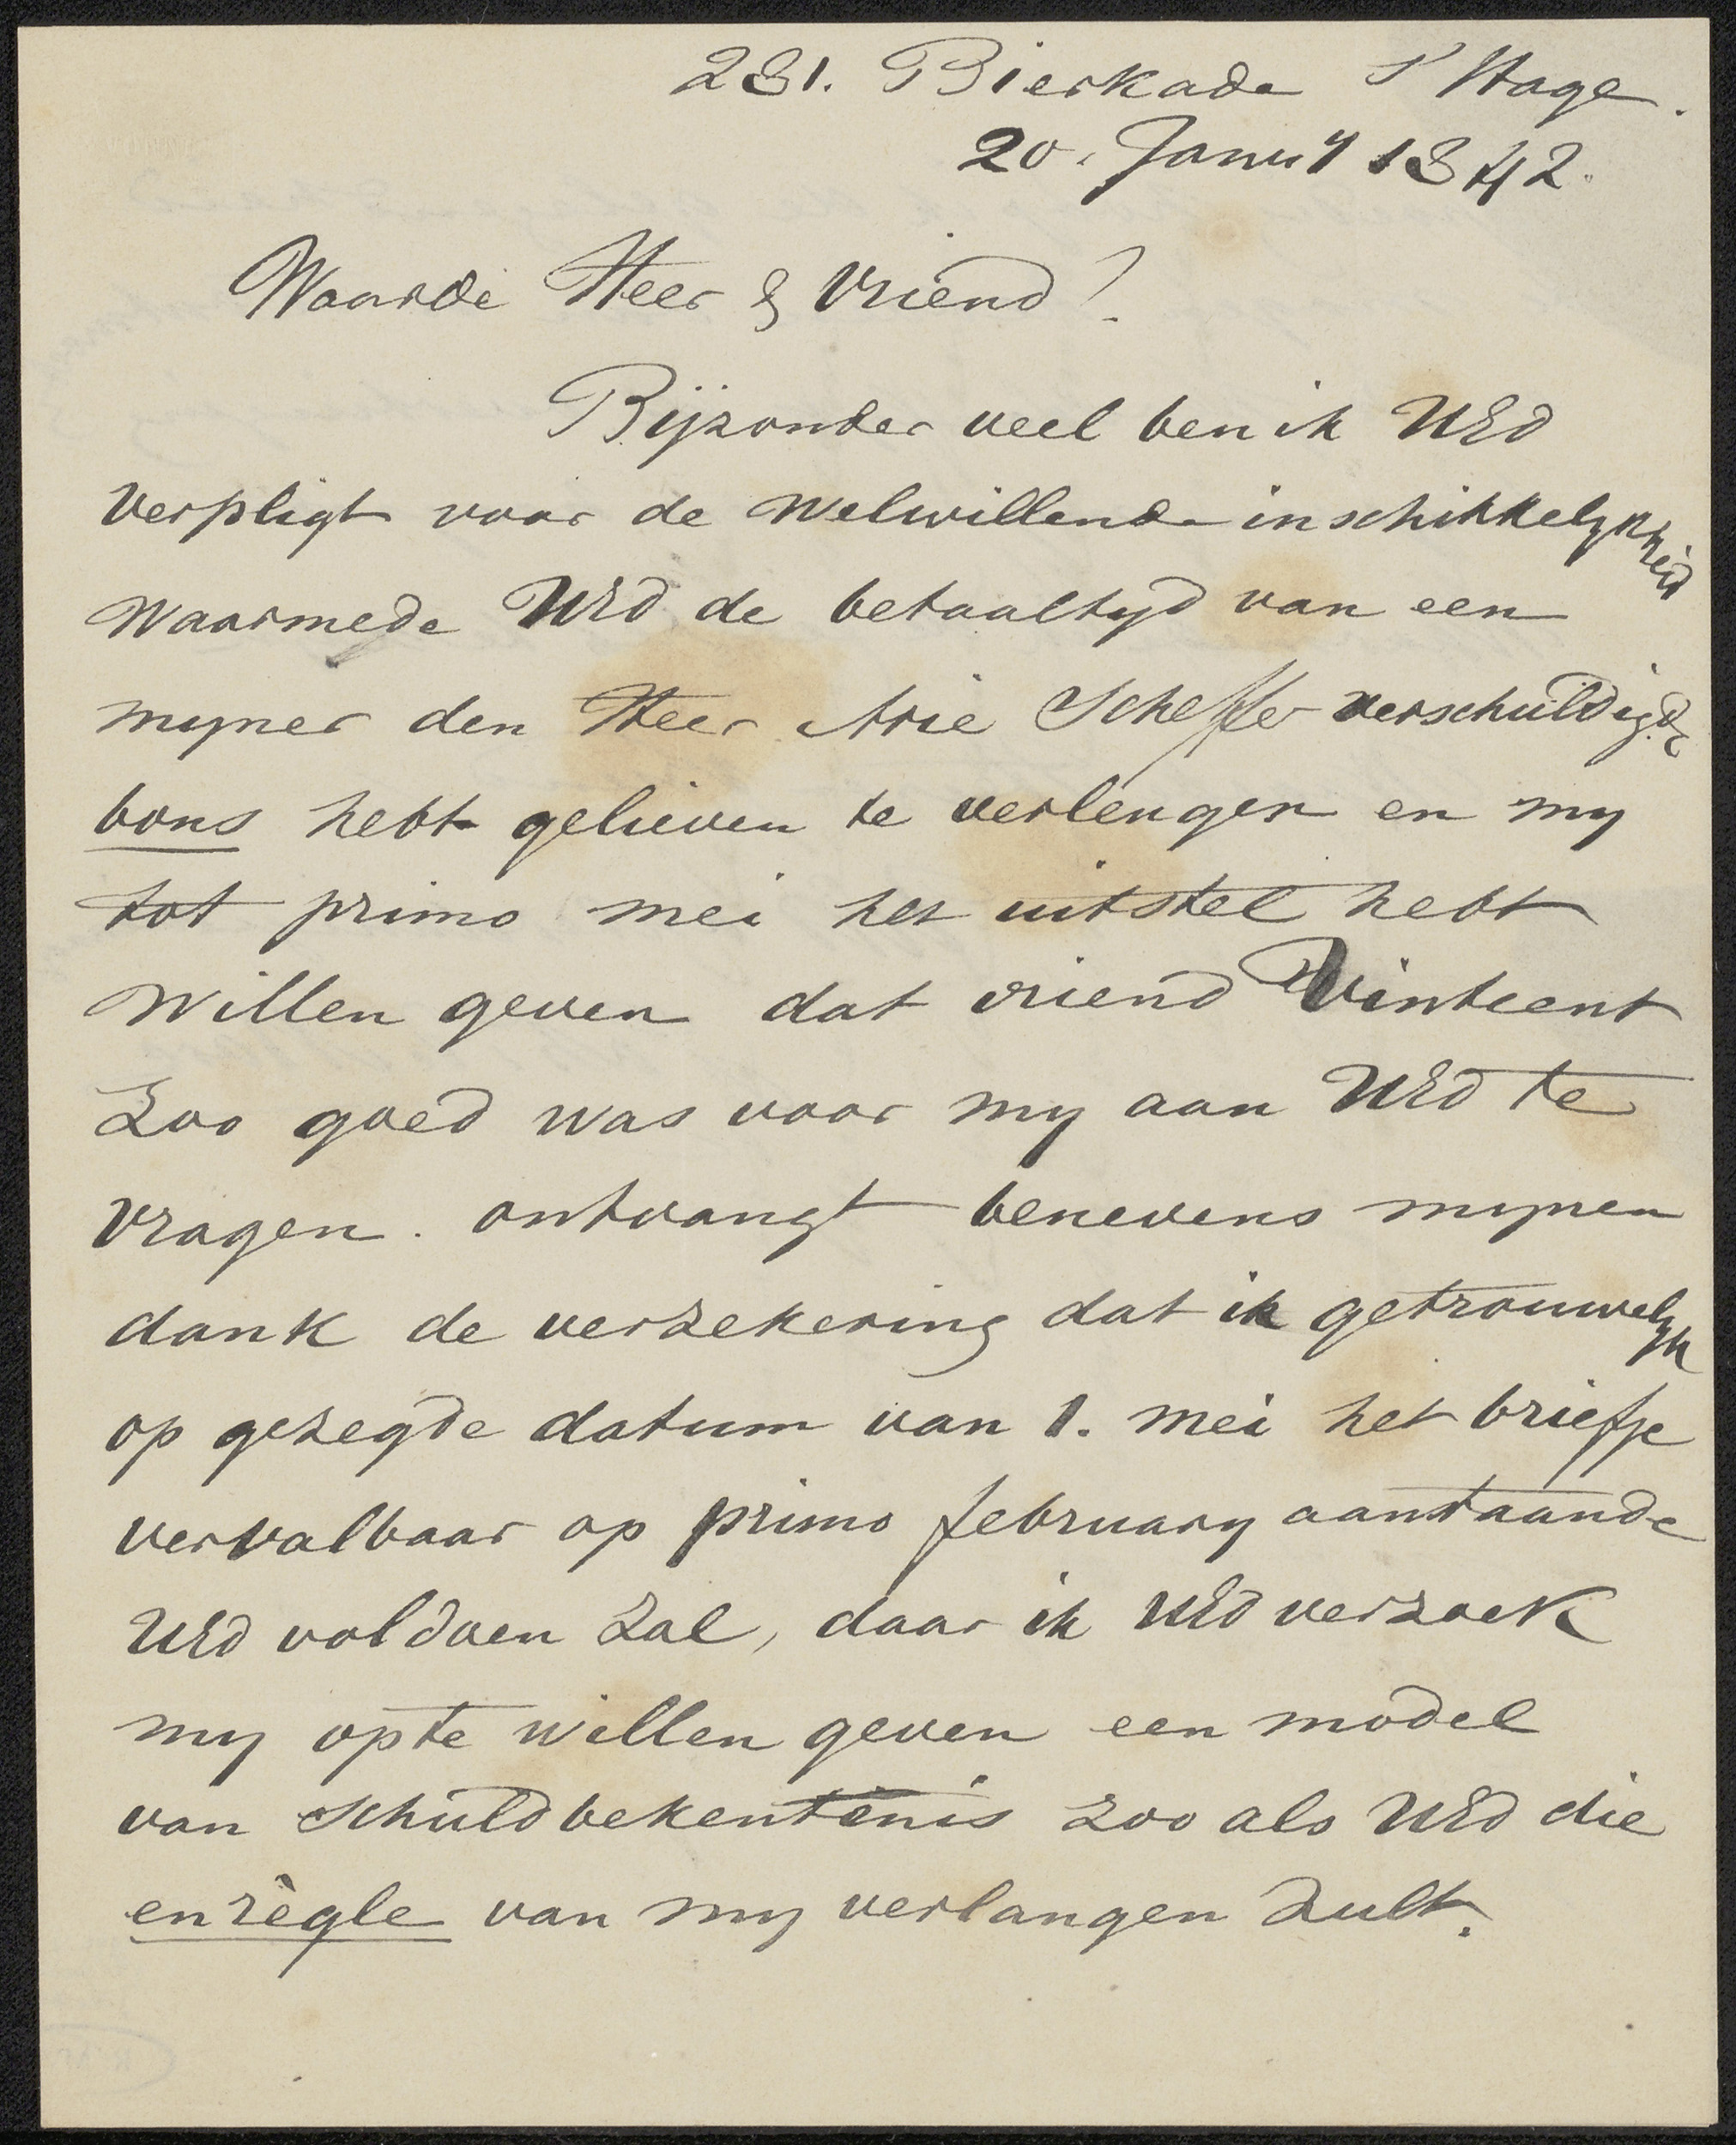 281. Bierkade S' Hage.
20. Janry 1842.
Waarde Heer & Vriend!
Bijzonder veel ben ik UEd
verpligt voor de welwillende inschikkelykheid
waarmede UEd de betaaltyd van een
myner den Heer Arie Scheffer verschuldigde
bons hebt gelieven te verlengen en my
tot primo mei het uitstel hebt
willen geven dat vriend Vinteent
Zoo goed was voor my aan UEd te
vragen. ontvangt benevens mynen
dank de verzekering dat ik getrouwelyk
op gezegde datum van 1. mei het briefje
vervalbaar op primo february aanstaande
UEd voldoen zal, daar ik UEd verzoek
my op te willen geven een model
van schuldbekentenis zoo als UEd die
en règle van my verlangen zult.